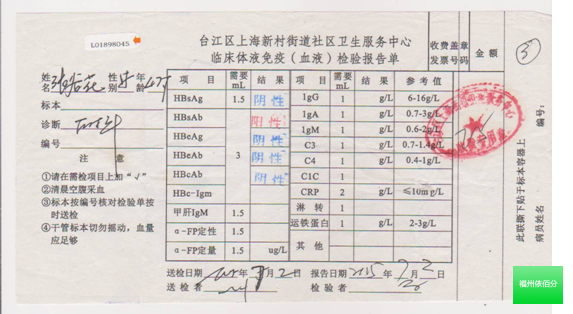 L01898045
台江区上海新村街道社区卫生服务中心
临床体液免疫(血液)检验报告单
收费盖章
发票号码
金额
③
姓名 性别 年龄
标本
诊断
注 意
①请在需检项目上加“√”
②清晨空腹采血
③标本按编号核对检验单按时送检
④干管标本切勿摇动,血量应足够
项 目 需要mL 结 果 项 目 需要mL 结 果 参 考 值
HBsAg 1.5 阴性 1gG 1 g/L 6-16g/L
HBsAb 阳性 1gA 1 g/L 0.7-3g/L
HBeAg 阴性 1gM 1 g/L 0.6-2g/L
HBeAb 3 阴性 C3 1 g/L 0.7-1.4g/L
HBcAb 阴性 C4 1 g/L 0.4-1g/L
HBc-Igm C1C 1 g/L
CRP 2 g/L ≤10mg/L
甲肝IgM 1.5 淋 转 1
α-FP定性 1.5 运铁蛋白 1 g/L 2-3g/L
α-FP定量 1.5 ug/L 其 他
送检日期 年 月 2 日 报告日期 2015 年 7 月 2 日
送 检 者 检 验 者
编号:
此联撕下贴于标本容器上
病员姓名
福州依佰分